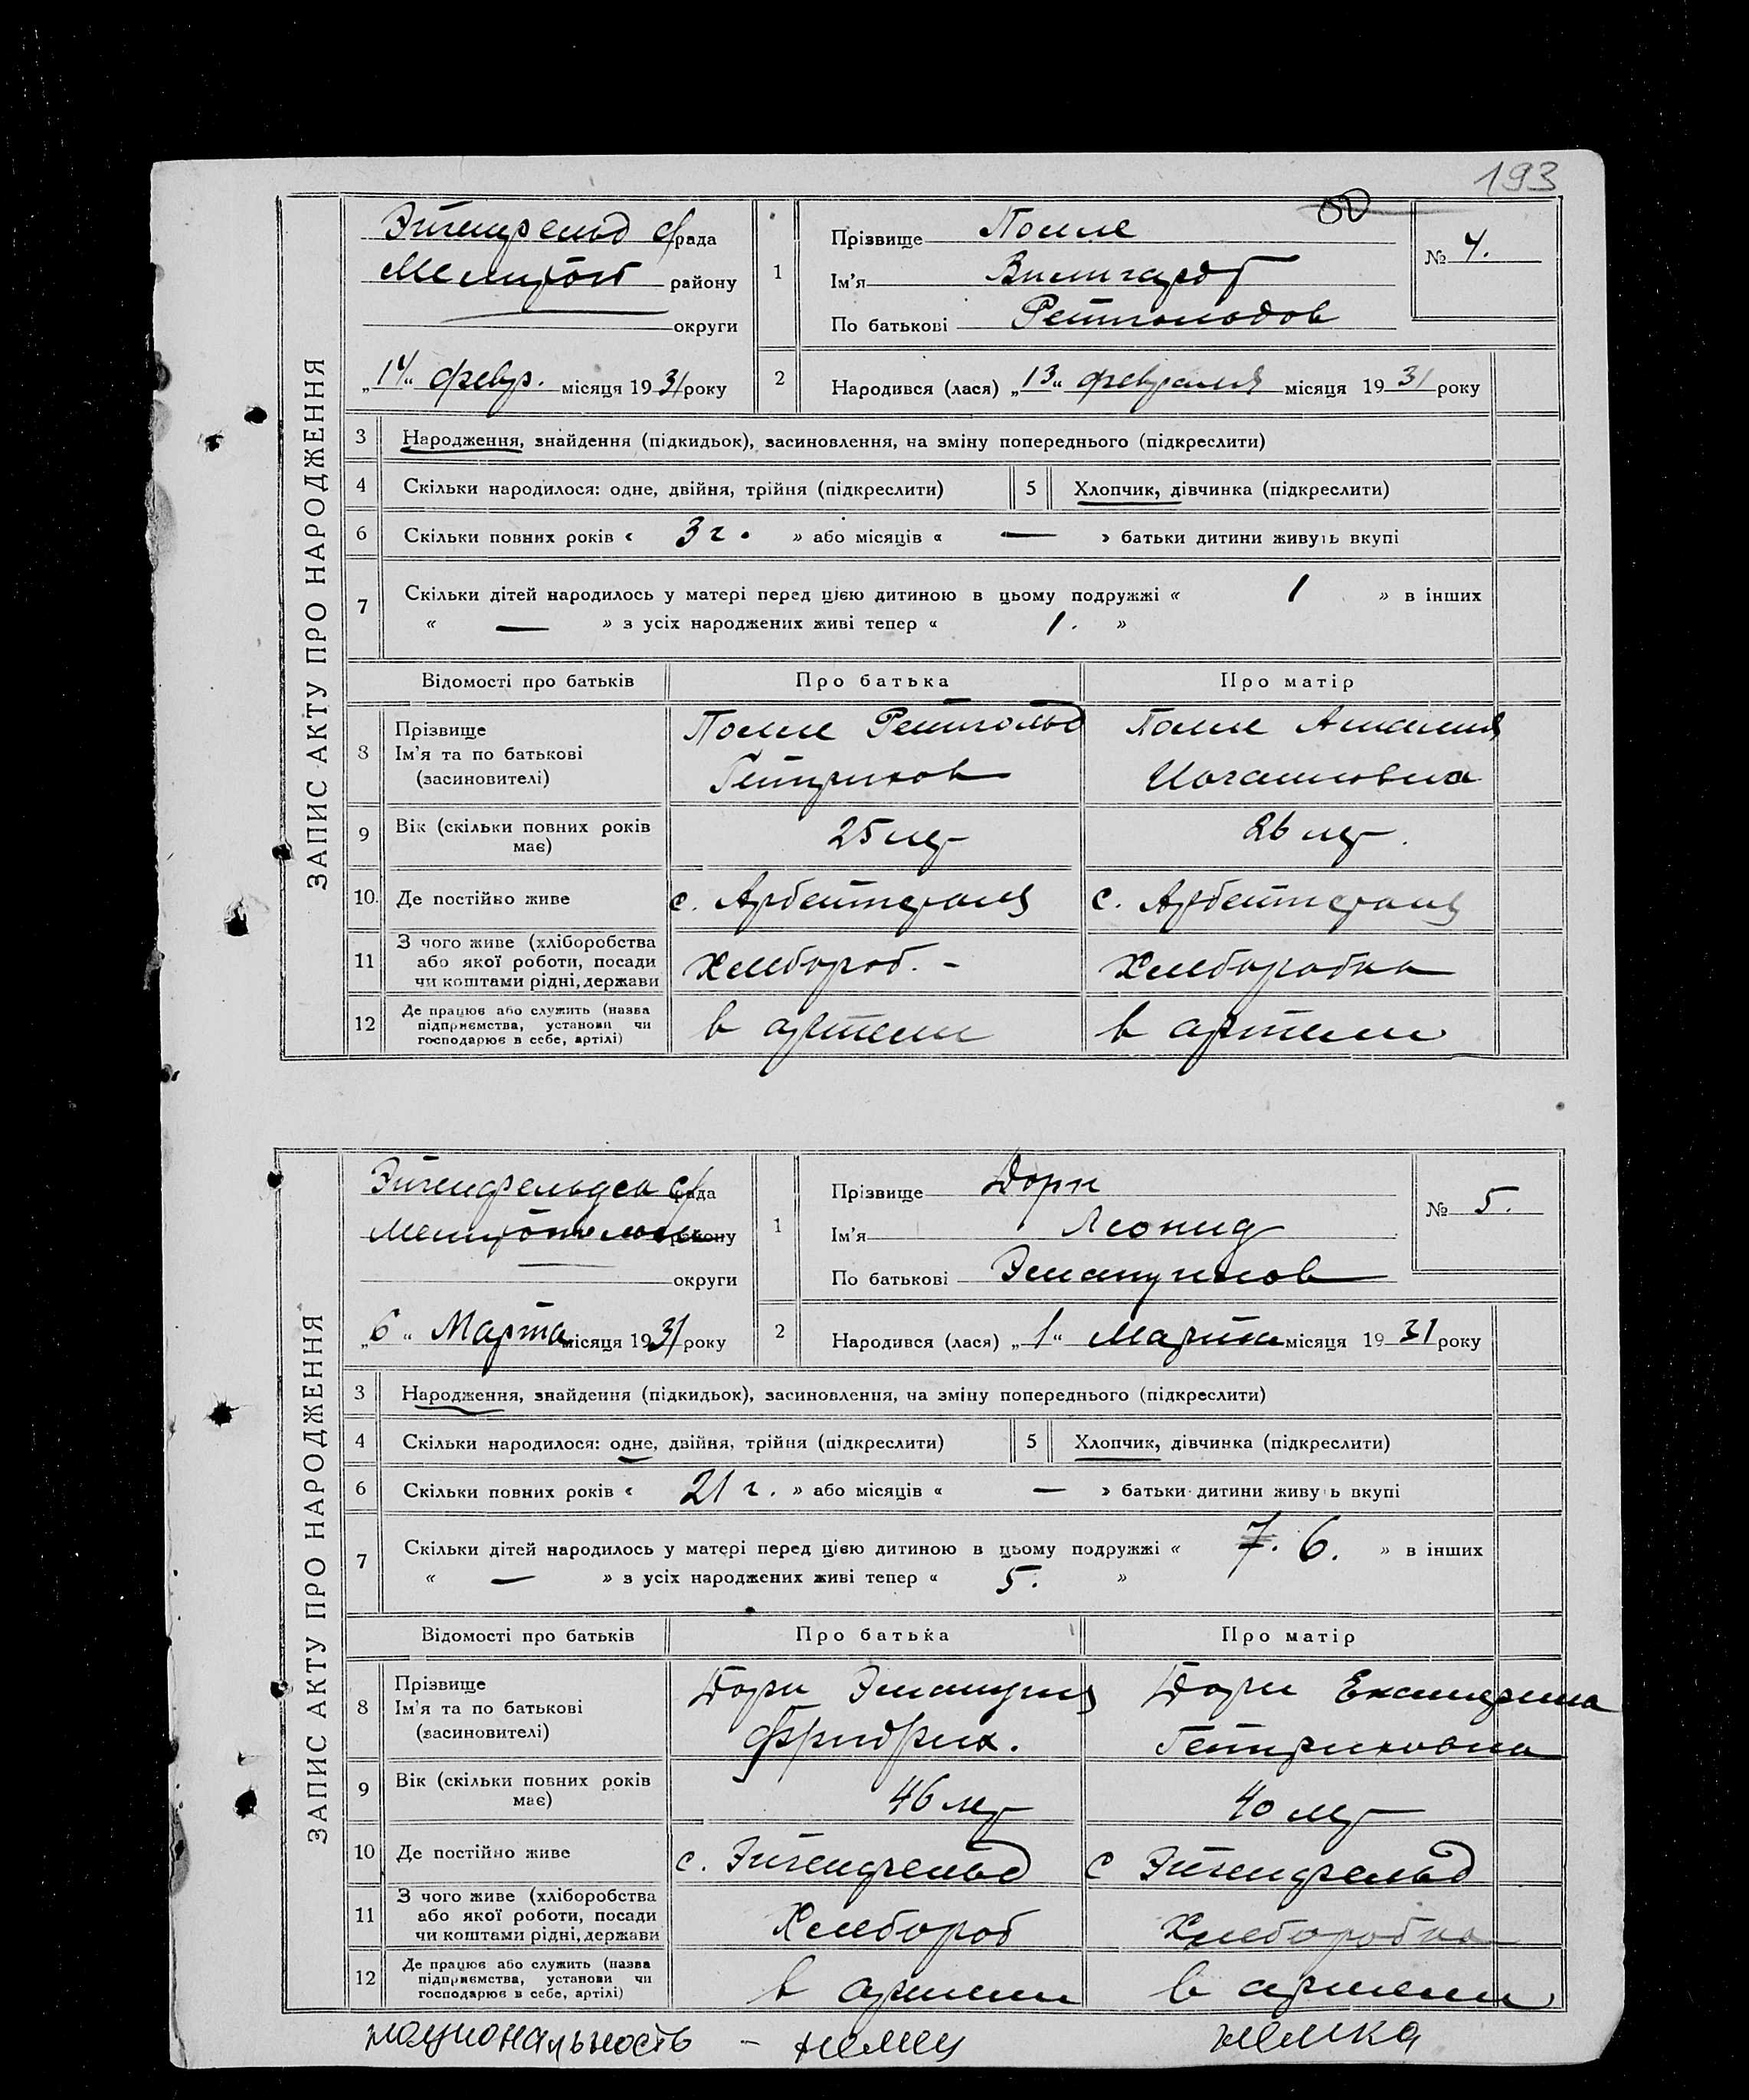 193
ЗАПИС АКТУ ПРО НАРОДЖЕННЯ
Эйгенфельд с/рада
Мелитоп району
округи
„14“ февр. місяця 1931 року
1
Прізвище Полле
Ім'я
По батькові Рейнгольдов
№ 4.
2
Народився (лася) „13“ февраля місяця 1931 року
3 Народження, знайдення (підкидьок), засиновлення, на зміну попереднього (підкреслити)
4 Скільки народилося: одне, двійня, трійня (підкреслити) 5 Хлопчик, дівчинка (підкреслити)
6 Скільки повних років « 3 г. » або місяців « — » батьки дитини живуть вкупі
7 Скільки дітей народилось у матері перед цією дитиною в цьому подружжі « 1 » в інших
« — » з усіх народжених живі тепер « 1. »
Відомості про батьків Про батька Про матір
8 Прізвище
Ім'я та по батькові
(засиновителі)
Полле Рейнгольд
Гейнрихов
Полле Амалия
Иогановна
9 Вік (скільки повних років
має)
25 лет 26 лет.
10. Де постійно живе с. Арбейтсгейм с. Арбейтсгейм
11 З чого живе (хліборобства
або якої роботи, посади
чи коштами рідні, держави
Хлебороб. - Хлеборобка
12 Де працює або служить (назва
підприємства, установи чи
господарює в себе, артілі)
в артели в артели
ЗАПИС АКТУ ПРО НАРОДЖЕННЯ
Эйгенфельдск с/рада
Мелитопольск району
округи
„6“ Марта місяця 1931 року
1
Прізвище Дорн
Ім'я Леонид
По батькові Эмануилов
№ 5.
2
Народився (лася) „1“ Марта місяця 1931 року
3 Народження, знайдення (підкидьок), засиновлення, на зміну попереднього (підкреслити)
4 Скільки народилося: одне, двійня, трійня (підкреслити) 5 Хлопчик, дівчинка (підкреслити)
6 Скільки повних років « 21 г. » або місяців « — » батьки дитини живуть вкупі
7 Скільки дітей народилось у матері перед цією дитиною в цьому подружжі « 7. 6. » в інших
« — » з усіх народжених живі тепер « 5. »
Відомості про батьків Про батька Про матір
8 Прізвище
Ім'я та по батькові
(засиновителі)
Дорн Эмануил
Фридрих.
Дорн Екатерина
Гейнриховна
9 Вік (скільки повних років
має)
46 лет 40 лет
10 Де постійно живе с. Эйгенфельд с Эйгенфельд
11 З чого живе (хліборобства
або якої роботи, посади
чи коштами рідні, держави
Хлебороб Хлеборобка
12 Де працює або служить (назва
підприємства, установи чи
господарює в себе, артілі)
в артели в артели
национальность - немец немка